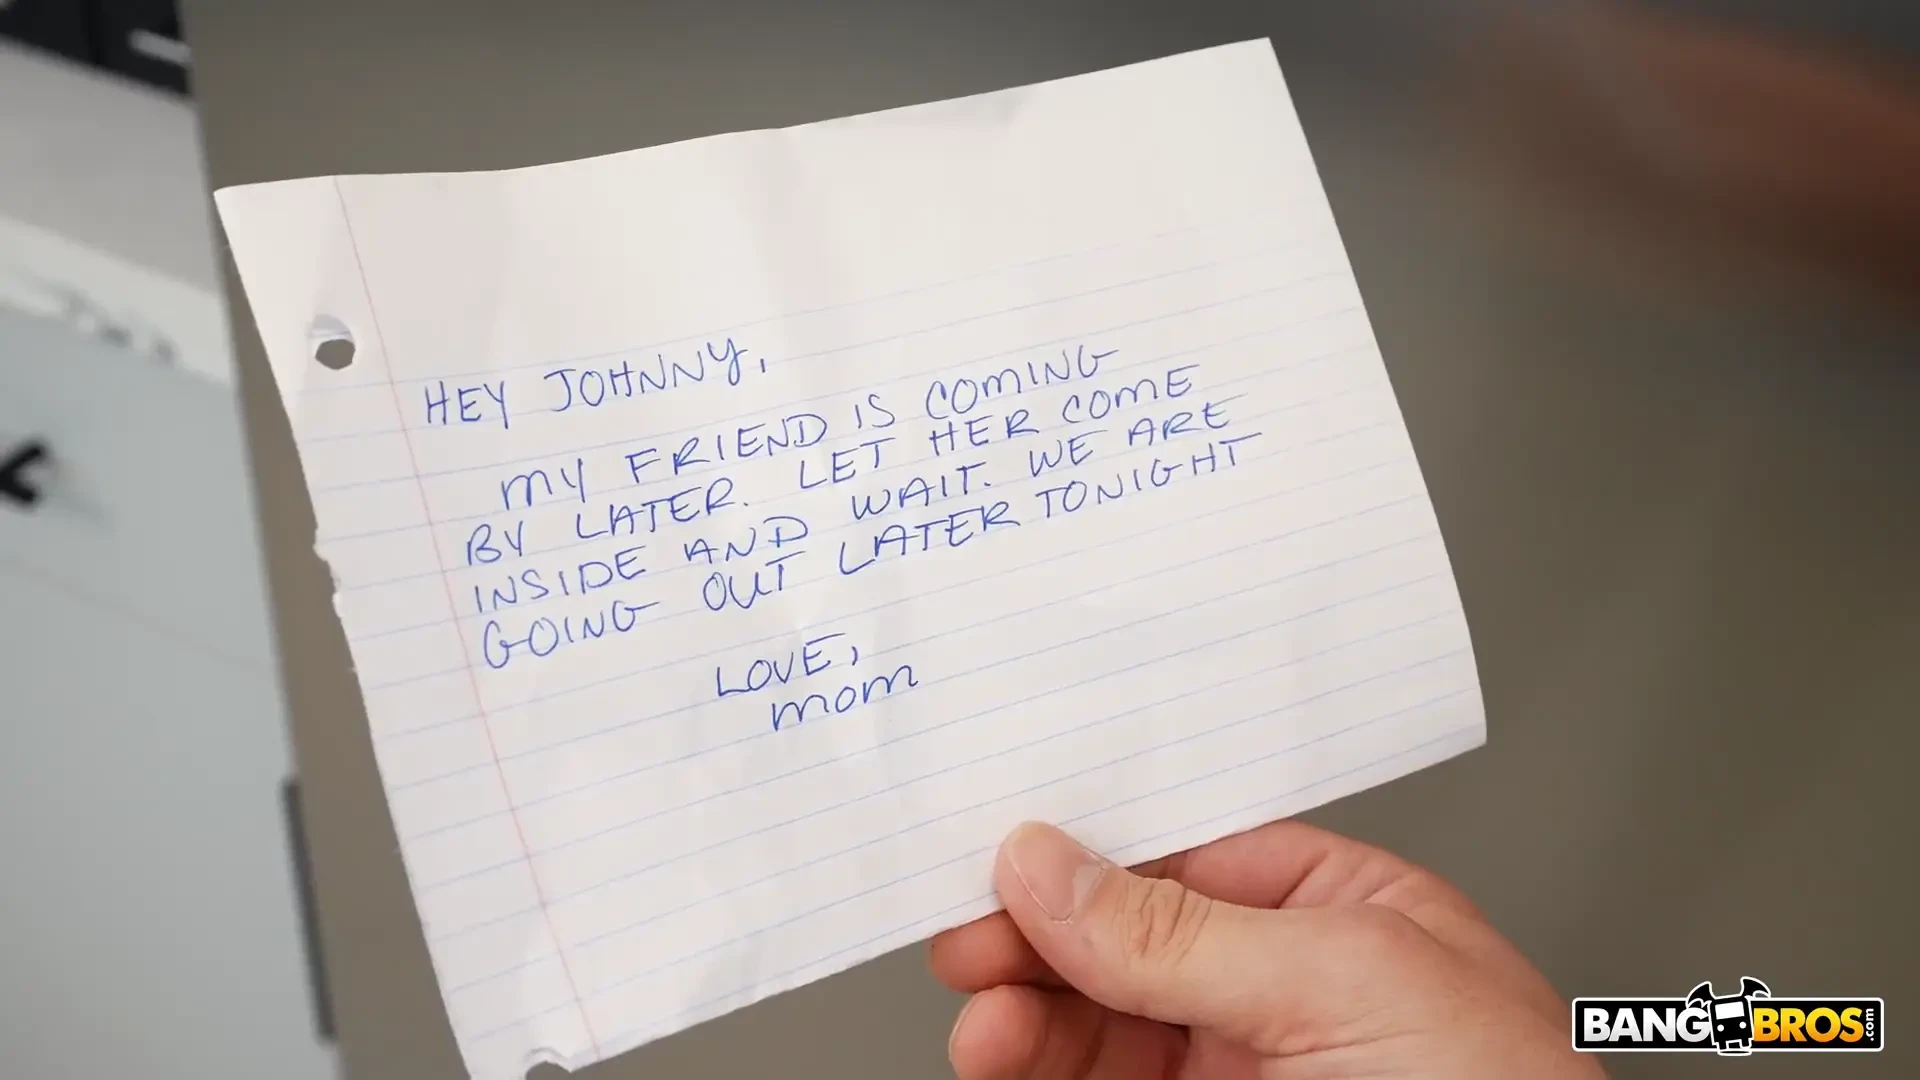 HEY JOHNNY,
MY FRIEND IS COMING
BY LATER. LET HER COME
INSIDE AND WAIT. WE ARE
GOING OUT LATER TONIGHT
LOVE,
MOM
BANGBROS.com